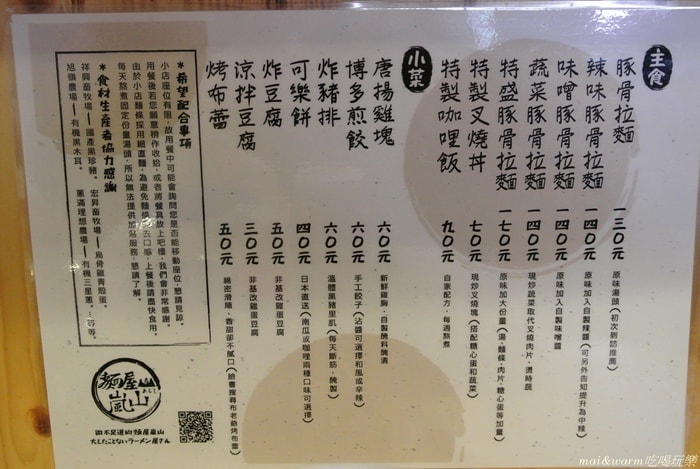 主食
豚骨拉麵 一三〇元 原味湯頭(初次到訪推薦)
辣味豚骨拉麵 一四〇元 原味加入自製辣醬(可另外告知提升為中辣)
味噌豚骨拉麵 一四〇元 原味加入自製味噌醬
蔬菜豚骨拉麵 一四〇元 現炒蔬菜取代叉燒肉片、燙時蔬
特盛豚骨拉麵 一七〇元 原味加大份量(湯、麵條、肉片、糖心蛋等加量)
特製叉燒丼 七〇元 現炒叉燒塊(搭配糖心蛋和蔬菜)
特製咖哩飯 九〇元 自家配方,每週熬煮
小菜
唐揚雞塊 六〇元 新鮮雞胸,自製醃料醃漬
博多煎餃 六〇元 手工餃子(沾醬可選擇和風或辛辣)
炸豬排 六〇元 溫體黑豬里肌(每天斷筋、醃製)
可樂餅 四〇元 日本直送(南瓜或咖哩兩種口味可選擇)
炸豆腐 五〇元 非基改雞蛋豆腐
涼拌豆腐 三〇元 非基改雞蛋豆腐
烤布蕾 五〇元 綿密滑順、香甜卻不膩口(臉書搜尋布老爺烤布蕾)
*希望配合事項
小店座位有限,故用餐中可能會詢問您是否能移動座位,懇請見諒。
用餐後若您願意稍作收拾,或者將餐具放上吧檯,我們會非常感謝。
由於小店麵條採用細直麵,為避免麵條 口感,上餐後請盡快食用。
每天熬煮固定份量湯頭,所以無法提供加湯服務,懇請了解。
*食材生產者協力感謝
祥興畜牧場——國產黑珍豬。 宏昇畜牧場——烏骨雞青殼蛋。
旭嶺農場——有機黑木耳。 蔥滿理想農場——有機三星蔥。…等等。
麵屋
嵐山
微不足道的麵屋嵐山
大したことないラーメン屋さん
mai&warm吃喝玩樂